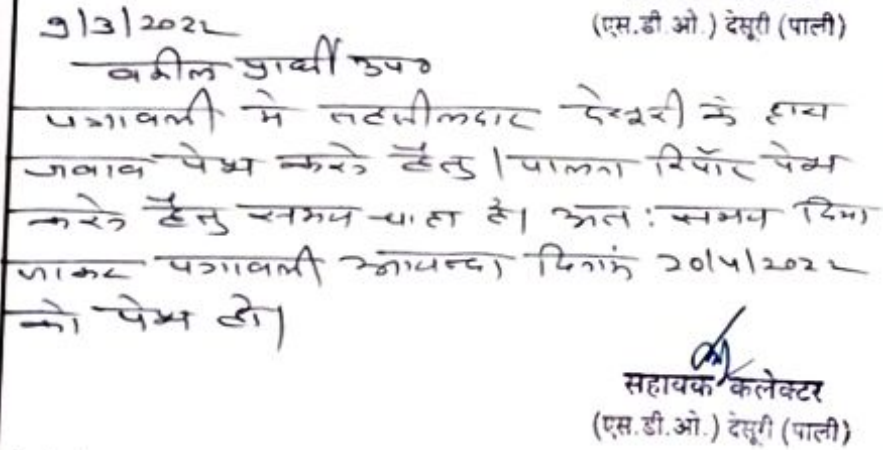 (एस.डी.ओ.) देसूरी (पाली)
9/3/2022
वकील प्रार्थी उप०
पत्रावली मे तहसीलदार देसूरी के द्वारा
जवाब पेश करने हेतु / पालना रिपोर्ट पेश
करने हेतु समय चाहा है। अत: समय दिया
जाकर पत्रावली आयन्दा दिनांक 20/4/2022
को पेश हो।
सहायक कलेक्टर
(एस.डी.ओ.) देसूरी (पाली)